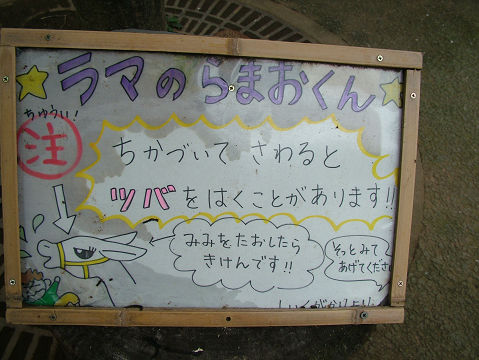 ラマのらまおくん
ちゅうい!
注
ちかづいて さわると
ツバをはくことがあります!!
みみをたおしたら
きけんです!!
そっとみて
あげてくださ
しいくがかりより